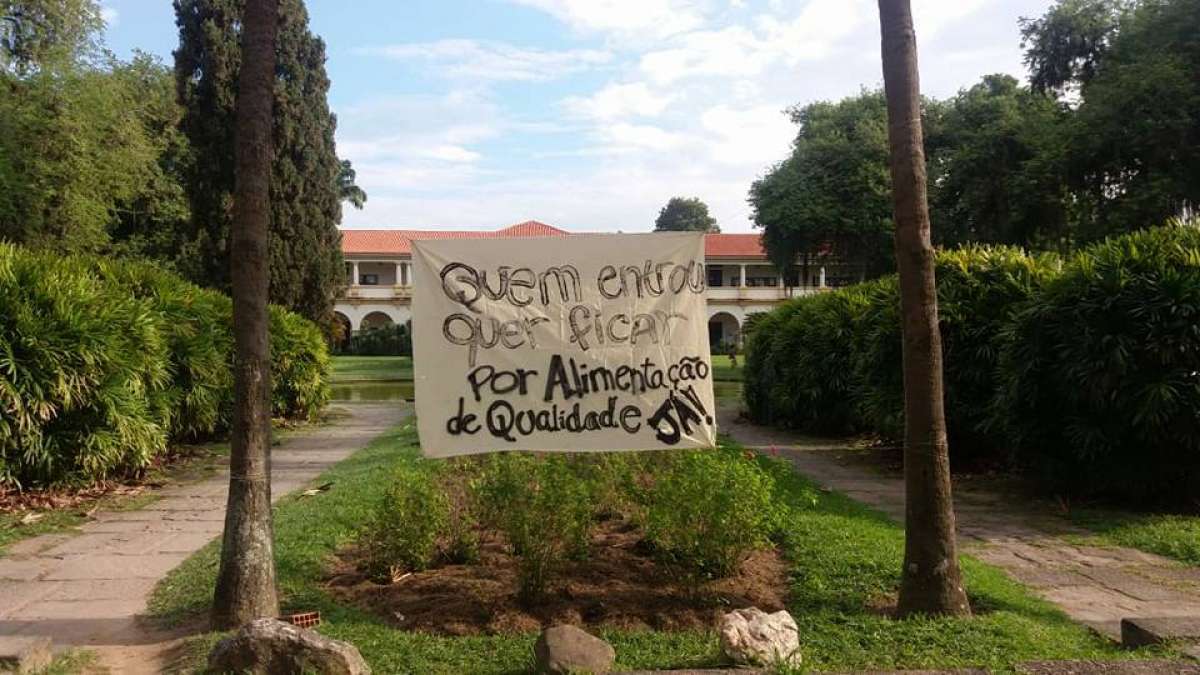 Quem entrou
quer ficar
Por Alimentação
de Qualidade JÁ!